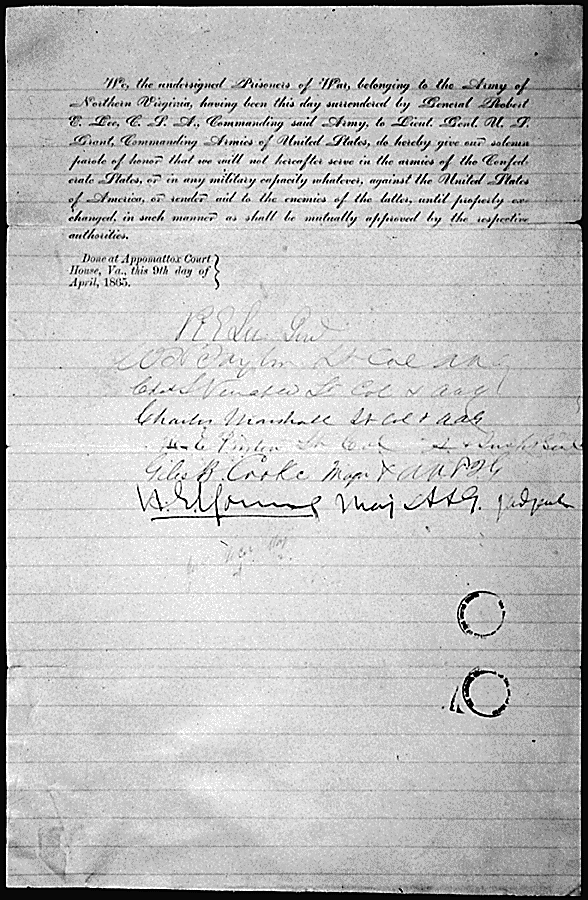 We, the undersigned Prisoners of War, belonging to the Army of
Northern Virginia, having been this day surrendered by General Robert
E. Lee, C. S. A., Commanding said Army, to Lieut. Genl. U. S.
Grant, Commanding Armies of United States, do hereby give our solemn
parole of honor that we will not hereafter serve in the armies of the Confed-
erate States, or in any military capacity whatever, against the United States
of America, or render aid to the enemies of the latter, until properly ex-
changed, in such manner as shall be mutually approved by the respective
authorities.
Done at Appomattox Court
House, Va., this 9th day of
April, 1865.
R E Lee Genl
W H Taylor Lt Col AAG
Chas S Venable Lt Col & AAG
Charles Marshall Lt Col & AAG
H E Peyton Lt Col & Gen'l
Giles B. Cooke Major & AAG
H. E. Young Maj AAG.